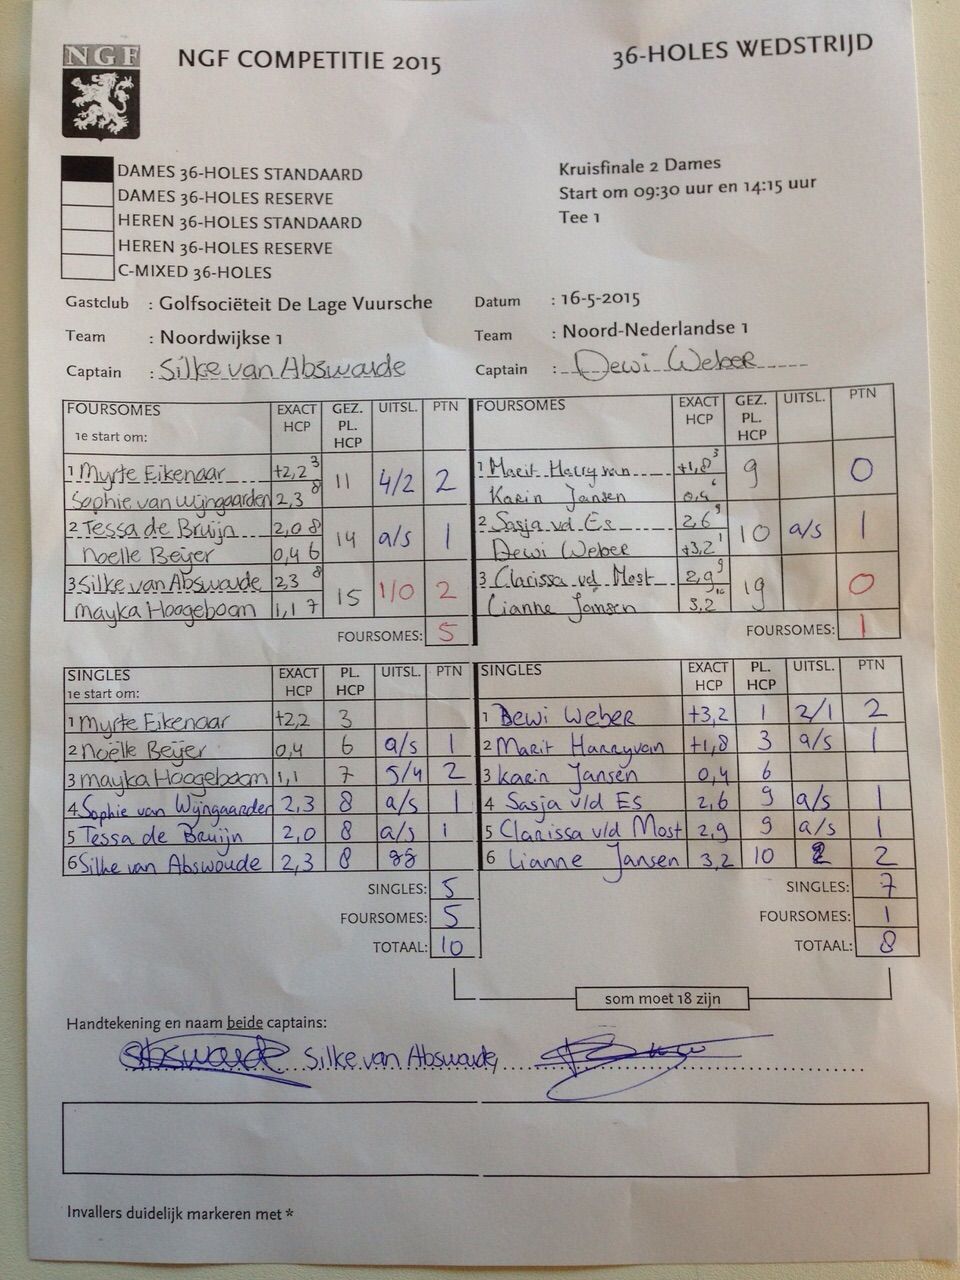 NGF
NGF COMPETITIE 2015
36-HOLES WEDSTRIJD
DAMES 36-HOLES STANDAARD
DAMES 36-HOLES RESERVE
HEREN 36-HOLES STANDAARD
HEREN 36-HOLES RESERVE
C-MIXED 36-HOLES
Kruisfinale 2 Dames
Start om 09:30 uur en 14:15 uur
Tee 1
Gastclub : Golfsociëteit De Lage Vuursche Datum : 16-5-2015
Team : Noordwijkse 1 Team : Noord-Nederlandse 1
Captain : Silke van Abswoude Captain : Dewi Weber
FOURSOMES EXACT HCP GEZ. PL. HCP UITSL. PTN FOURSOMES EXACT HCP GEZ. PL. HCP UITSL. PTN
1e start om:
1 Myrte Eikenaar +2,2 3 11 4/2 2 1 Marit Harryvan +1,8 3 9 0
Sophie van Wijngaarden 2,3 8 Karin Jansen 0,4 6
2 Tessa de Bruijn 2,0 8 14 a/s 1 2 Sasja vd Es 2,6 9 10 a/s 1
Noelle Beijer 0,4 6 Dewi Weber +3,2 1
3 Silke van Abswoude 2,3 8 15 1/0 2 3 Clarissa vd Most 2,9 9 19 0
Mayka Hoogeboom 1,1 7 Lianne Jansen 3,2 10
FOURSOMES: 5 FOURSOMES: 1
SINGLES EXACT HCP PL. HCP UITSL. PTN SINGLES EXACT HCP PL. HCP UITSL. PTN
1e start om:
1 Myrte Eikenaar +2,2 3 1 Dewi Weber +3,2 1 2/1 2
2 Noëlle Beijer 0,4 6 a/s 1 2 Marit Harryvan +1,8 3 a/s 1
3 Mayka Hoogeboom 1,1 7 5/4 2 3 Karin Jansen 0,4 6
4 Sophie van Wijngaarden 2,3 8 a/s 1 4 Sasja v/d Es 2,6 9 a/s 1
5 Tessa de Bruijn 2,0 8 a/s 1 5 Clarissa v/d Most 2,9 9 a/s 1
6 Silke van Abswoude 2,3 8 6 Lianne Jansen 3,2 10 2 2
SINGLES: 5 SINGLES: 7
FOURSOMES: 5 FOURSOMES: 1
TOTAAL: 10 TOTAAL: 8
som moet 18 zijn
Handtekening en naam beide captains:
Abswoude Silke van Abswoude
Invallers duidelijk markeren met *